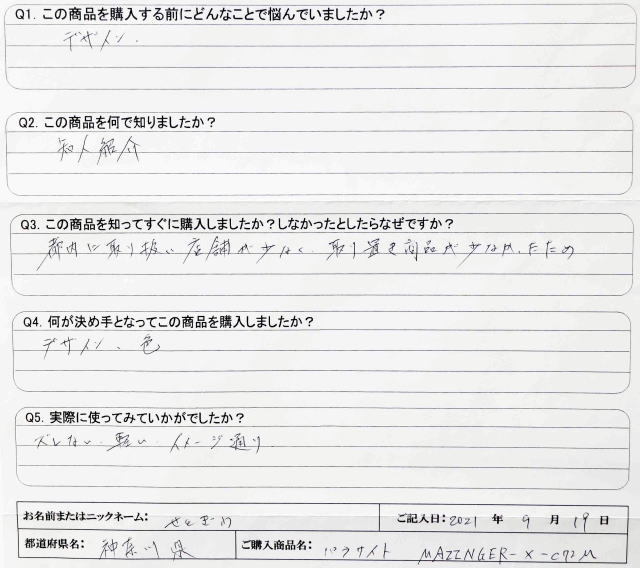 Q1. この商品を購入する前にどんなことで悩んでいましたか？
デザイン.
Q2. この商品を何で知りましたか？
知人紹介
Q3. この商品を知ってすぐに購入しましたか？しなかったとしたらなぜですか？
都内に取り扱い店舗が少なく、取り置き商品が少ない、ため
Q4. 何が決め手となってこの商品を購入しましたか？
デザイン、色
Q5. 実際に使ってみていかがでしたか？
ズレない、軽い、イメージ通り.
お名前またはニックネーム： ご記入日：2021 年 9 月 19 日
都道府県名： 神奈川県 ご購入商品名： パラサイト MAZZNGER-X-C72M